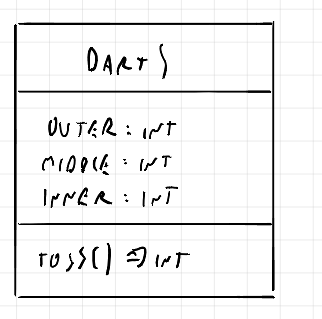 DARTS
OUTER : INT
MIDDLE : INT
INNER : INT
TOSS() => INT